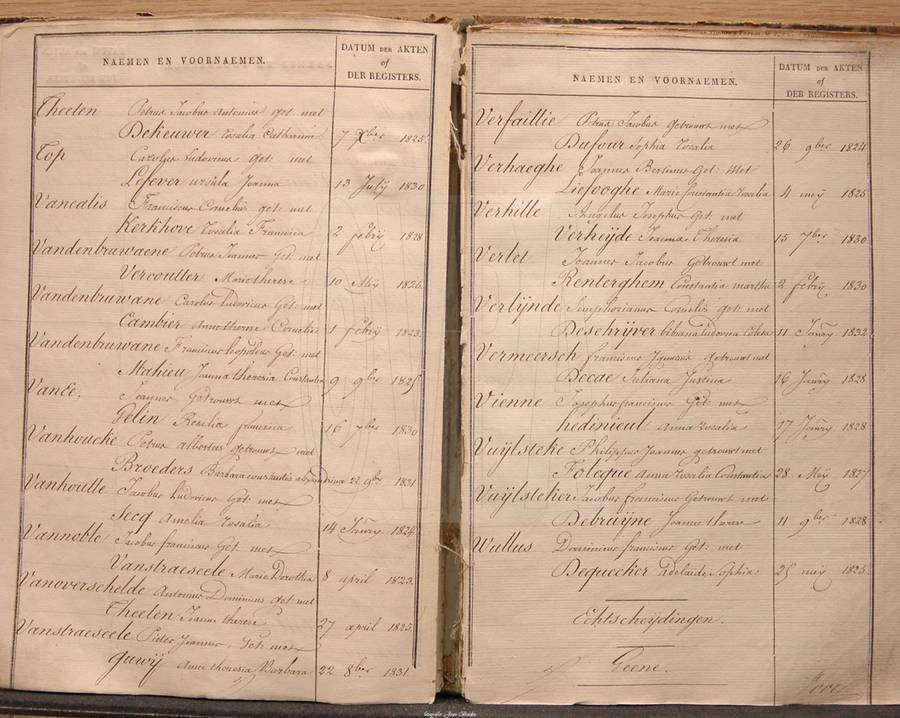 NAEMEN EN VOORNAEMEN.
DATUM DER AKTEN
of
DER REGISTERS.
Theeten Petrus Jacobus Antonius get. met
Dekeuwer Rosalia Catharina 7 Xber 1825
Top Carolus Ludovicus get. met
Lefever ursula Joanna 13 July 1830
Vancalis Franciscus Cornelis get. met
Kerkhove Rosalia Francisca 2 febry 1828
Vandenbruwaene Petrus Joannes Get. met
Vercoutter Marie therese 10 Mey 1826
Vandenbruwane Carolus Ludovicus Get. met
Cambier Anne therese Cornelia 1 febry 1823
Vandenbruwane Franciscus Leopoldus Get. met
Mahieu Joanna theresia Constantia 9 9ber 1825
Vancé, Joannes Getrouwt met
Gelin Rosalia francisca 16 7ber 1830
Vanhoucke Petrus albertus getrouwt met
Broeders Barbara constantia alexandrina 22 9ber 1831
Vanhoutte Jacobus Ludovicus Get. met
Secq Amelia Rosalia 14 Janry 1824
Vannoble Jacobus franciscus Get. met
Vanstraeseele Marie Dorothia 8 april 1823
Vanoverschelde Antonius Dominicus get. met
Theeten Joanna therese 27 april 1825
Vanstraeseele Pieter Joannes, Get. met
Guwij Anna theresia Barbara 22 8ber 1831
NAEMEN EN VOORNAEMEN.
DATUM DER AKTEN
of
DER REGISTERS.
Verfaillie Petrus Jacobus getrouwt met
Dufour Sophia Rosalia 26 9ber 1824
Verhaeghe Joannes Bertinus Get: Met
Liefooghe Marie Constantia Rosalia 4 mey 1825
Verhille Angelus Josephus Get: met
Verheijde Joanna Theresia 15 7ber 1830
Verlet Joannes Jacobus Getrouwt met
Renterghem Constantia martha 2 febry 1830
Verlijnde Simphorianus Cornelis get: met
Deschrijver bibiana Ludovica Coleta 11 Janry 1832
Vermeersch franciscus Ignatius getrouwt met
Becae Juliana Justina 16 Janry 1828
Vienne Josephus franciscus Get: met
hedinieul Anna Rosalia 17 Janry 1828
Vuijlsteke Philippus Joannes getrouwt met
Foleque Anna Rosalia Constantia 28 Mey 1827
Vuijlsteker Jacobus franciscus Getrouwt met
Debruijne Joanna therese 11 9ber 1828
Wullus Dominicus franciscus Get: met
Dequecker Adelaide Sophia: 25 mey 1825
Echtscheijdingen.
Geene.